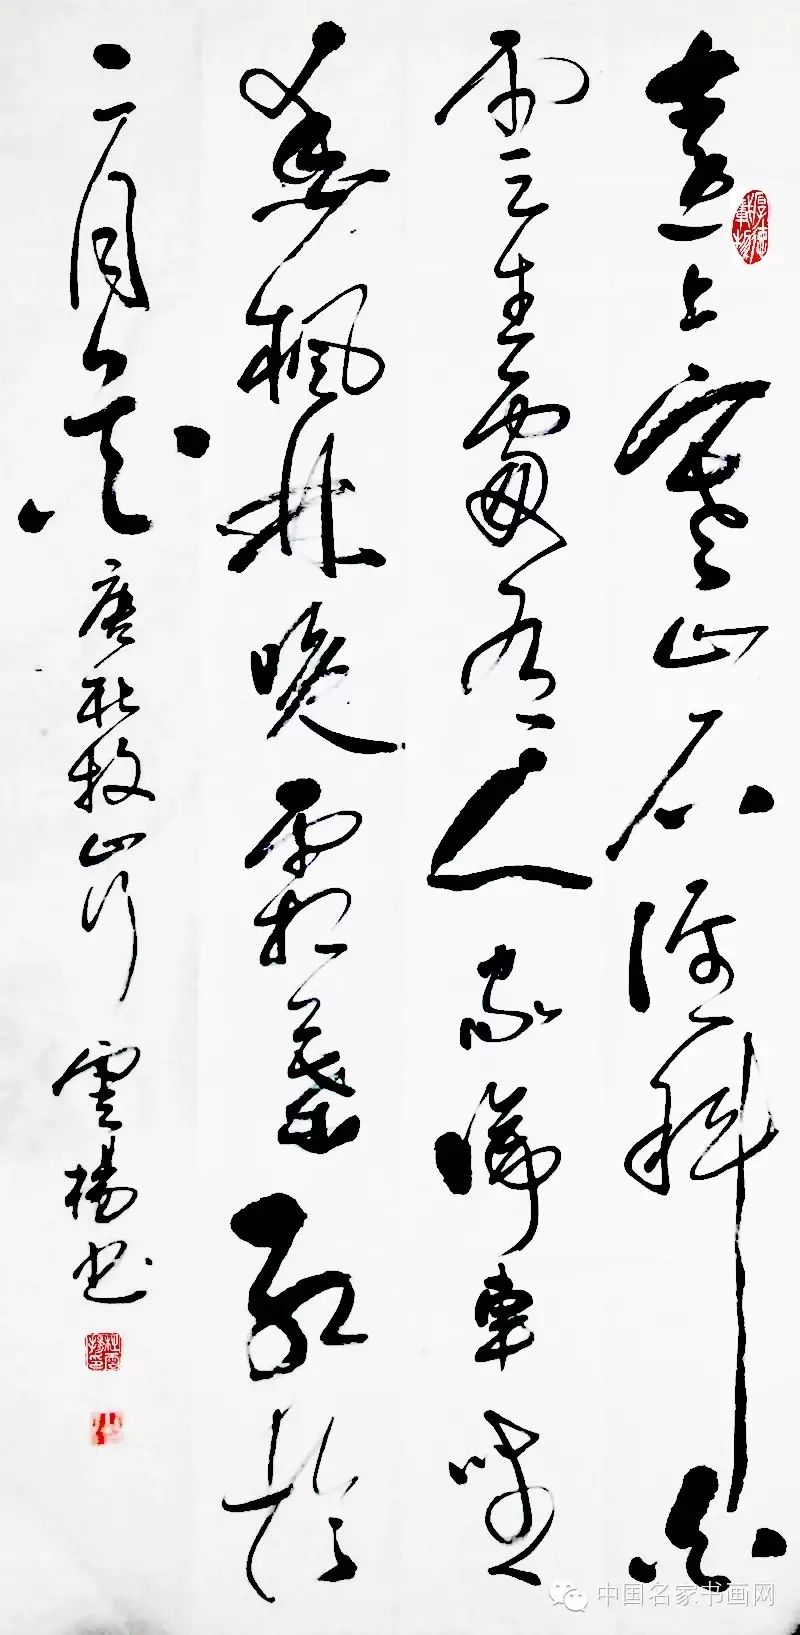 厚德載物
遠上寒山石徑斜白
雲生處有人家停車坐
愛楓林晚霜葉紅於
二月花 唐杜牧山行 雲楊书
中国名家书画网